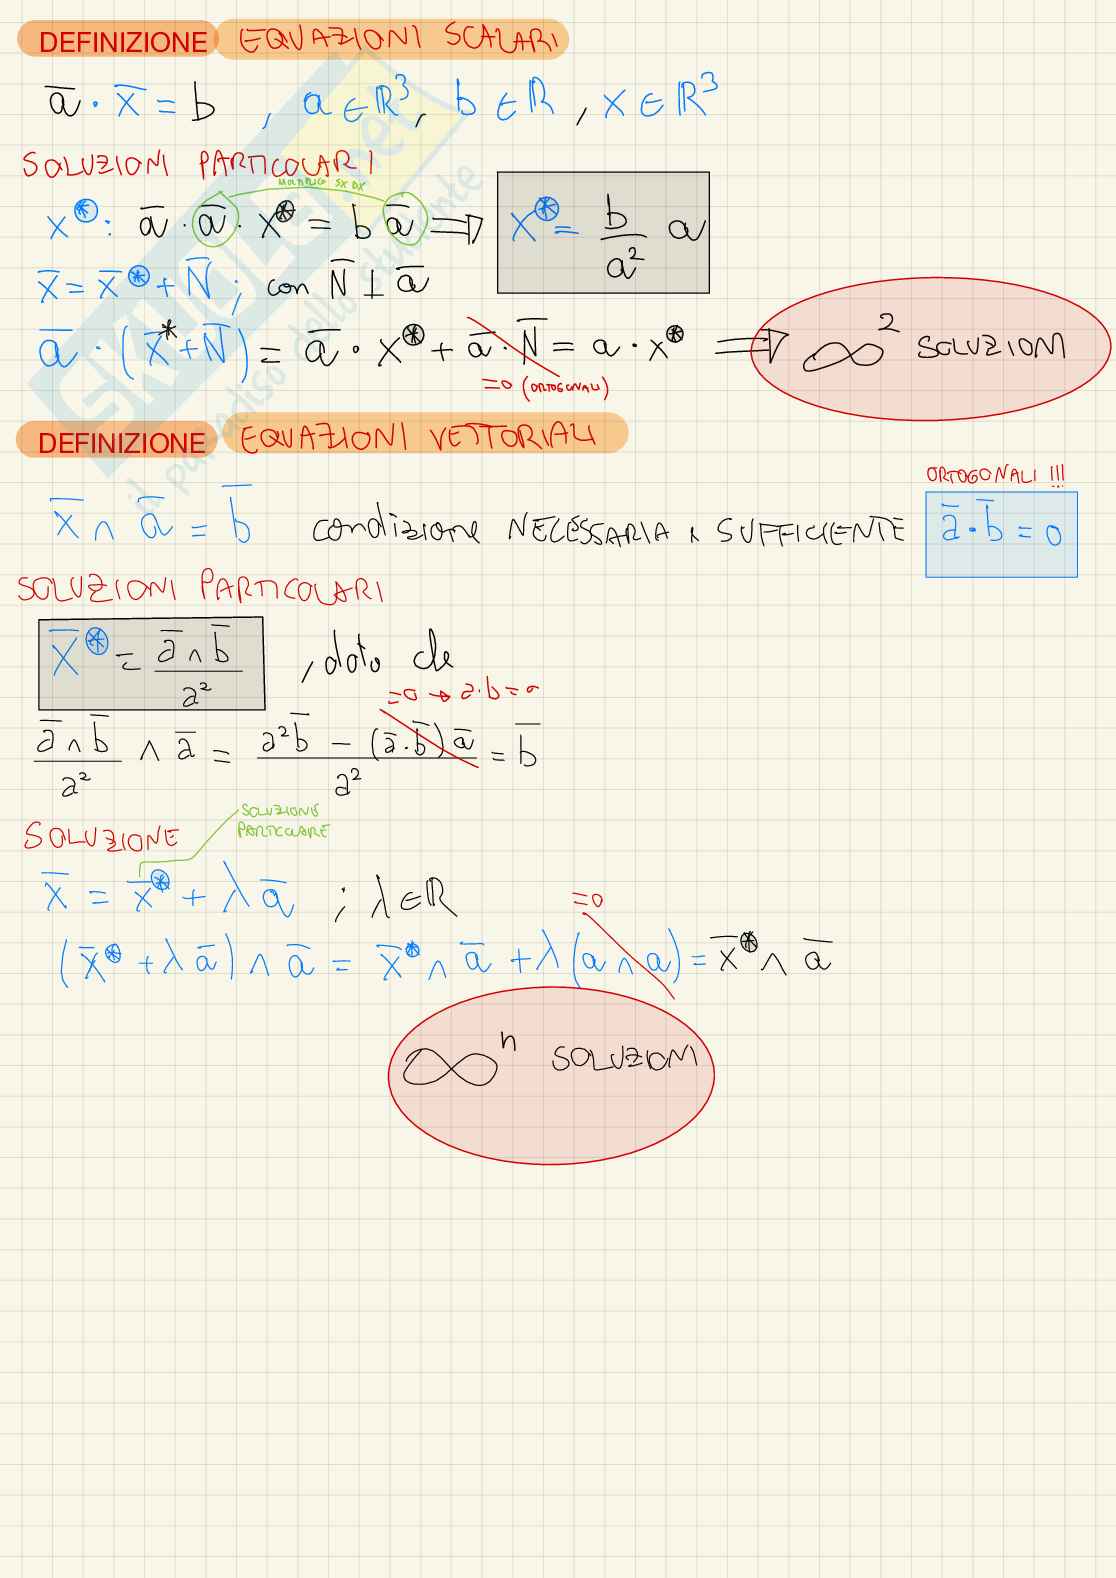 DEFINIZIONE EQUAZIONI SCALARI
a̅ · x̅ = b , a ∈ ℝ³, b ∈ ℝ, x ∈ ℝ³
SOLUZIONI PARTICOLARI
MOLTIPLICO SX DX
x⊛: a̅ · a̅ · x⊛ = b a̅ ⟹ x⊛ = b/a² a
x̅ = x̅⊛ + N̅ ; con N̅ ⊥ a̅
a̅ · (x̅* + N̅) = a̅ · x⊛ + a̅ · N̅ = a · x⊛ ⟹ ∞² SOLUZIONI
=0 (ORTOGONALI)
DEFINIZIONE EQUAZIONI VETTORIALI
ORTOGONALI !!!
x̅ ∧ a̅ = b̅ condizione NECESSARIA & SUFFICIENTE a̅ · b̅ = 0
SOLUZIONI PARTICOLARI
x̅⊛ = a̅ ∧ b̅ / a² , dato che
=0 → a·b=0
a̅ ∧ b̅ / a² ∧ a̅ = a² b̅ − (a̅ · b̅) a̅ / a² = b̅
SOLUZIONE
SOLUZIONE
PARTICOLARE
x̅ = x̅⊛ + λ a̅ ; λ ∈ ℝ
=0
(x̅⊛ + λ a̅) ∧ a̅ = x̅⊛ ∧ a̅ + λ (a ∧ a) = x̅⊛ ∧ a̅
∞ⁿ SOLUZIONI
SKUOLA.net
il paradiso dello studente